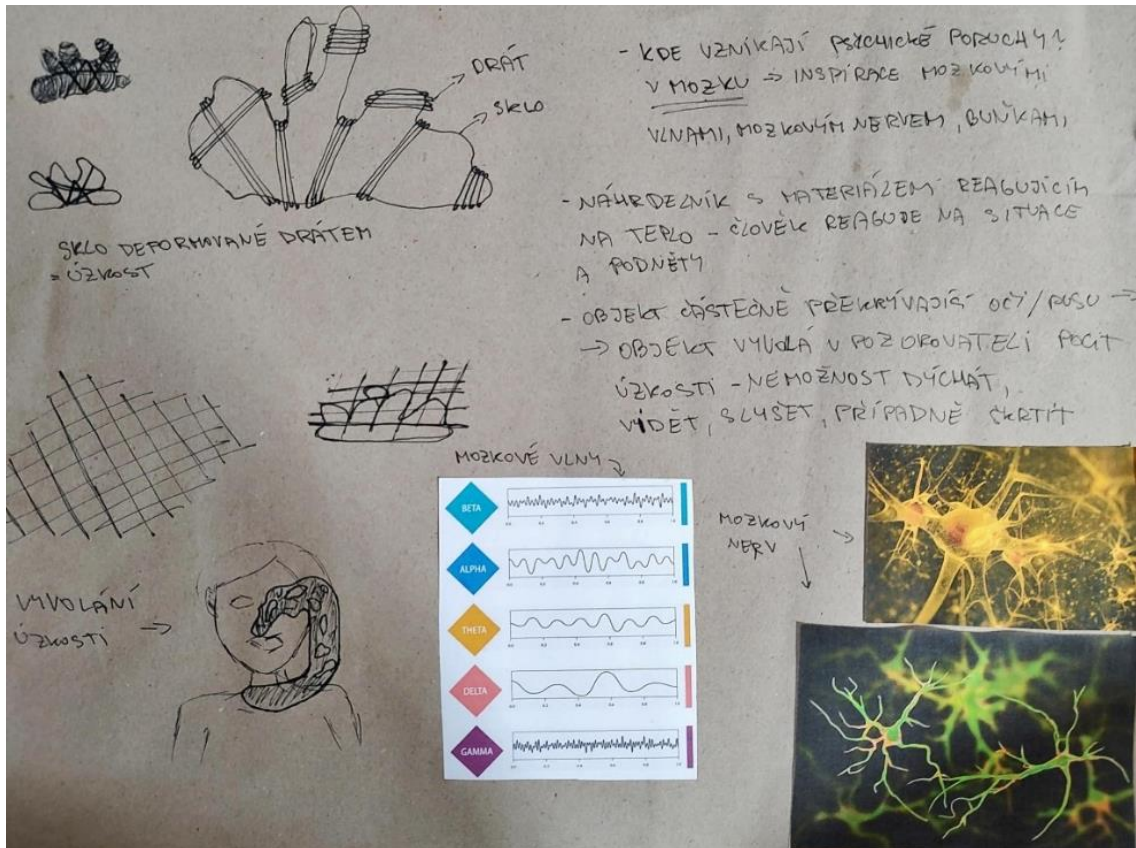 DRÁT
SKLO
SKLO DEFORMOVANÉ DRÁTEM
= ÚZKOST
- KDE VZNIKAJÍ PSYCHICKÉ PORUCHY?
V MOZKU → INSPIRACE MOZKOVÝMI
VLNAMI, MOZKOVÝM NERVEM, BUŇKAMI,
- NÁHRDELNÍK S MATERIÁLEM REAGUJÍCÍM
NA TEPLO - ČLOVĚK REAGUJE NA SITUACE
A PODNĚTY
- OBJEKT ČÁSTEČNĚ PŘEKRÝVAJÍŠÍ OČI/PUSU →
→ OBJEKT VYVOLÁ V POZOROVATELI POCIT
ÚZKOSTI - NEMOŽNOST DÝCHAT,
VIDĚT, SLYŠET, PŘÍPADNĚ ŠKRTIT
MOZKOVÉ VLNY
BETA
0.0 0.2 0.4 0.6 0.8 1.0
ALPHA
0.0 0.2 0.4 0.6 0.8 1.0
THETA
0.0 0.2 0.4 0.6 0.8 1.0
DELTA
0.0 0.2 0.4 0.6 0.8 1.0
GAMMA
0.0 0.2 0.4 0.6 0.8 1.0
MOZKOVÝ
NERV →
VYVOLÁNÍ
ÚZKOSTI →